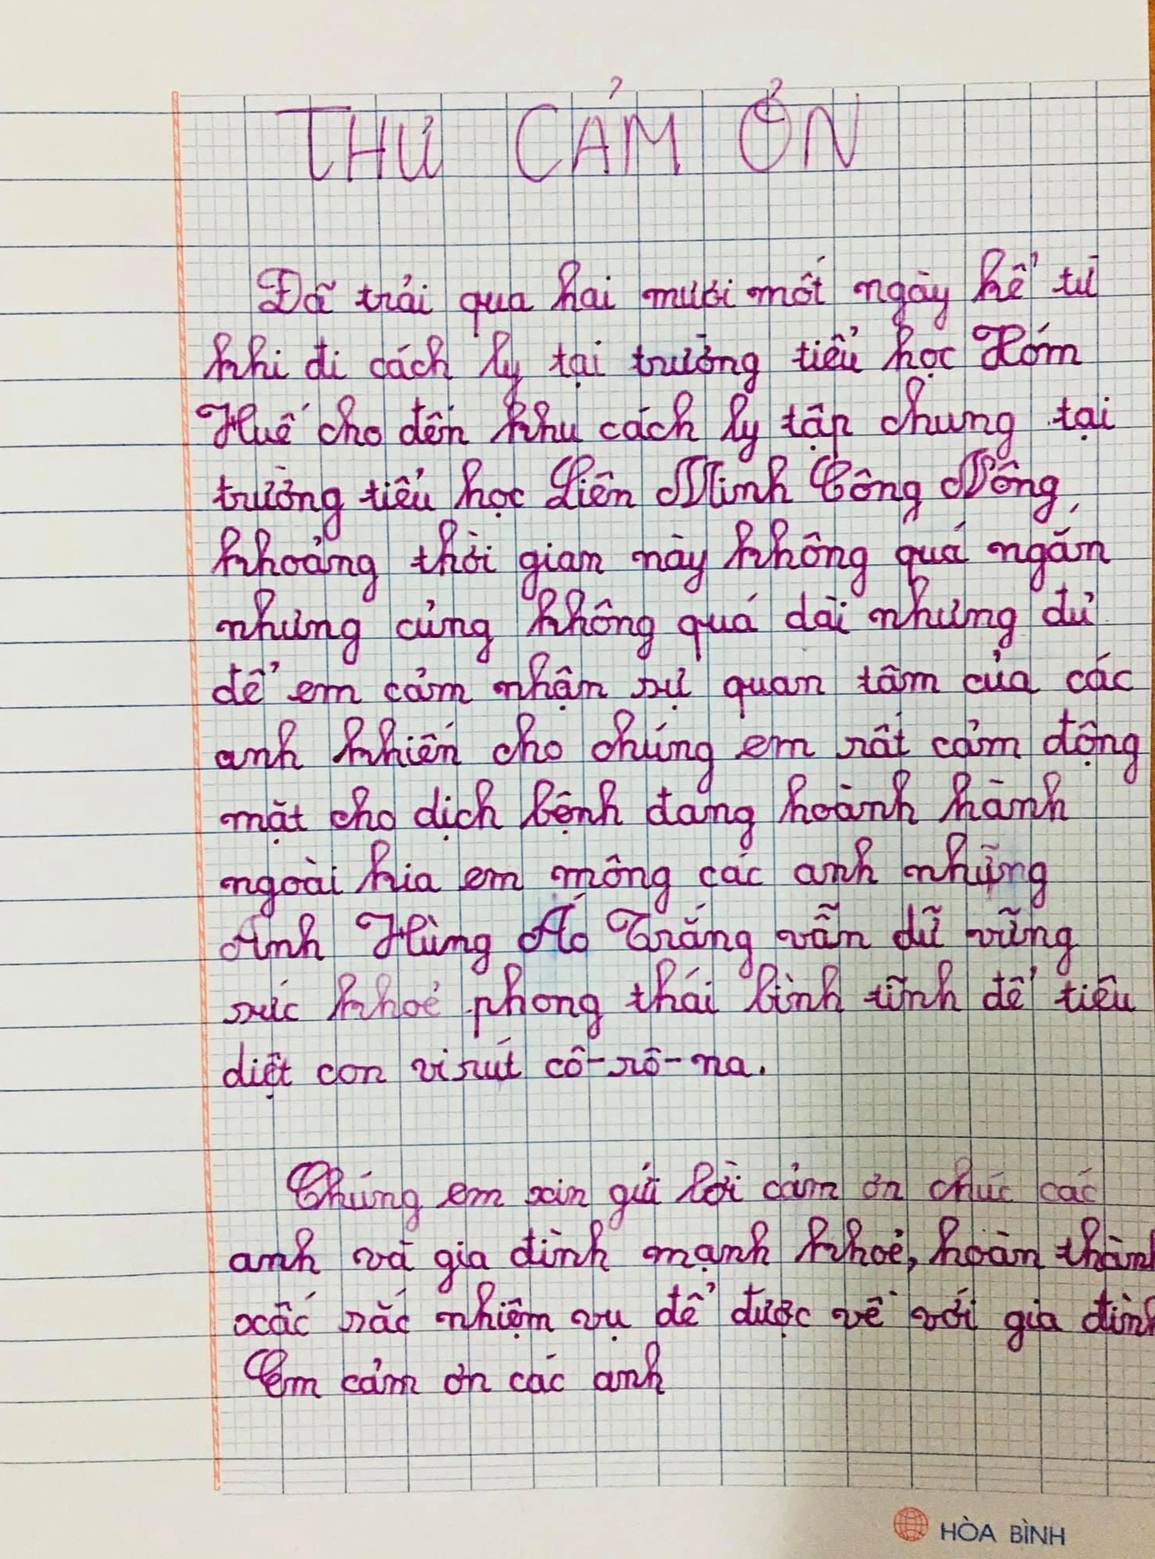 THƯ CẢM ƠN
Đã trải qua hai mươi mốt ngày kể từ
khi đi cách ly tại trường tiểu học Xóm
Huế cho đến khu cách ly tập chung tại
trường tiểu học Liên Minh Công Nông,
khoảng thời gian này không quá ngắn
nhưng củng không quá dài nhưng đủ
để em cảm nhận sự quan tâm của các
anh khiến cho chúng em rất cảm động
mặt cho dịch bệnh đang hoành hành
ngoài kia em mông các anh những
Anh Hùng Áo Trắng vẫn dữ vững
sức khoẻ phong thái bình tĩnh để tiêu
diệt con virut cô-rô-na.
Chúng em xin gửi lời cảm ơn chúc các
anh và gia đình mạnh khoẻ, hoàn thành
xuất sắc nhiệm vụ để được về với gia đình
Em cảm ơn các anh
HÒA BÌNH